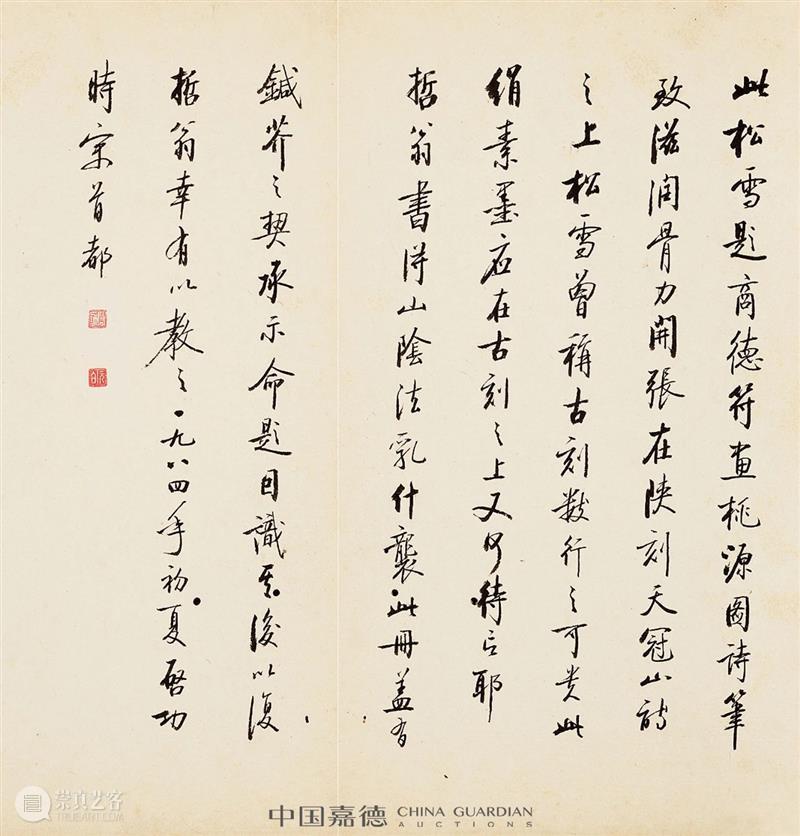 此松雪题商德符画桃源图詩筆
致滋润骨力開張在陝刻天冠山詩
之上松雪曾稱古刻數行之可贵此
绢素墨在古刻之上又何待言耶
哲翁書得山陰法乳什襲此冊盖有
鍼芥之契承示命题因識其後以復
哲翁幸有以教之一九八四年初夏启功
時客首都
崇真艺客
中国嘉德 CHINA GUARDIAN
AUCTIONS